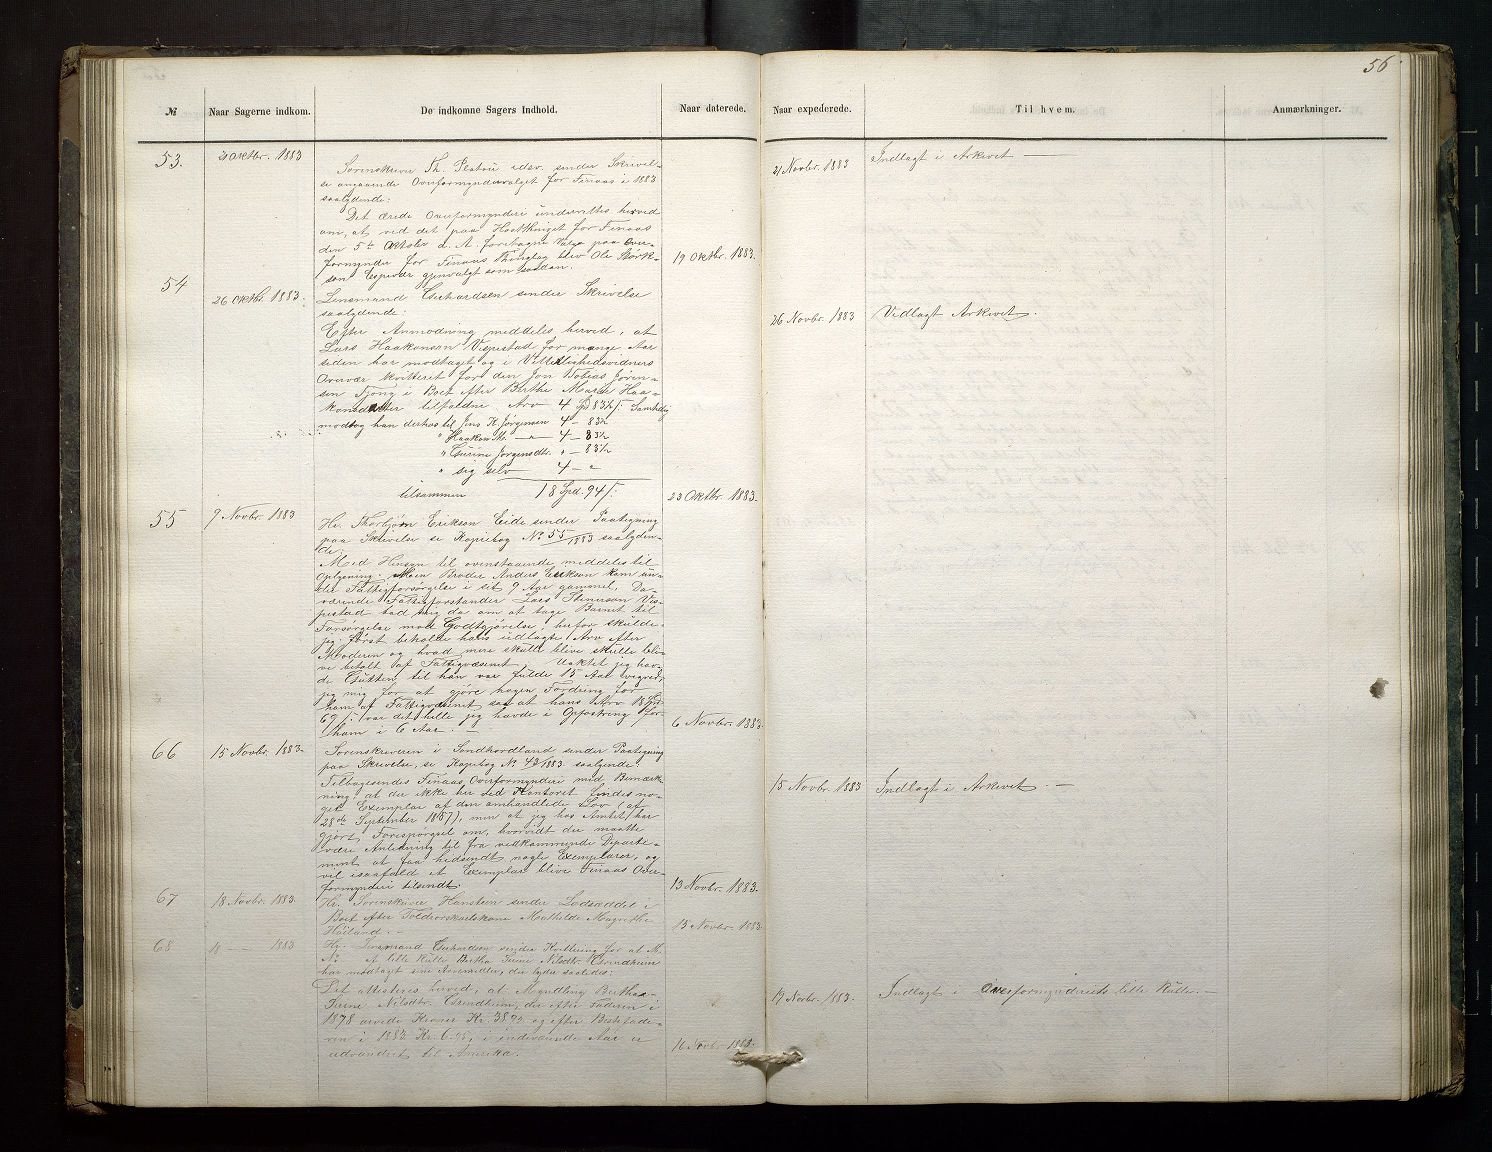 56.
№ Naar Sagerne indkom. De indkomne Sagers Indhold. Naar daterede. Naar expederede. Til hvem. Anmærkninger.
53. Oktbr. 1883
Sorenskriver Th. edsv. sender Skrivel-
se angaaende Overformyndervalget for Finaas i 1883
saalydende:
Det ærede Overformynderi underrettes herved
om, at ved det paa Høstthinget for Finaas
den 5te Oktober d. A. foretagne Valg paa Over-
formynder for Finaas Thinglag blev Ole Størk-
sen Espevær gjenvalgt som saadan.
19 Oktbr. 1883.
21 Novbr. 1883 Indlagt i Arkivet —
54 26 Oktbr 1883.
Lensmand Gerhardsen sender Skrivelse
saalydende:
Efter Anmodning meddeles herved, at
Lars Haakonsen Vespestad for mange Aar
siden har modtaget og i Vitterlighedsvidners
Overvær kvitteret for den Jon Tobias Jøren-
sen Fjong i Boet efter Berthe Marie Haa-
konsdatter tilfaldne Arv 4 Spd 83½ ß. Samtidig
modtog han derhos til Jens K. Jørgensen 4 - 83½
" Haakon M. — " — 4 - 83½
" Gurine Jørgensdtr. " - 83½
" sig selv 4 - "
tilsammen 18 Spd. 94 ß.
23 Oktbr. 1883.
26 Novbr. 1883 Vidlagt Arkivet.
55 9 Novbr. 1883
Hr. Thorbjørn Eriksen Eide sender Paategning
paa Skrivelse se Kopiebog No 55/1883 saalyden-
de:
Med Hensyn til ovenstaaende meddeles til
Oplysning: Min Broder Anders Erikson kom un-
der Fattigforsørgelse i sit 9 Aar gammel. Da-
værende Fattigforstander Lars Stenerson Ves-
pestad bad mig da om at tage Barnet til
Forsørgelse mod Godtgjørelse; herfor skulde
jeg først beholde hans udlagte Arv efter
Moderen og hvad mere skulle blive skulle bli-
ve betalt af Fattigvæsenet. Uaktet jeg hav-
de Gutten til han var fulde 15 Aar vegred
jeg mig for at gjøre nogen Fordring for
ham af Fattigvæsenet saa at hans Arv 18 Spd
67 ß. var det hele jeg havde i Opfostring for
ham i 6 Aar. —
6 Novbr. 1883.
66 15 Novbr. 1883.
Sorenskriveren i Søndhordland sender Paategning
paa Skrivelse, se Kopiebog No 43/1883 saalydende:
Tilbagesendes Finaas Overformynderi med Bemærk-
ning at der ikke her ved Kontoret findes no-
get Exemplar af den omhandlede Lov (af
28de September 1857), men at jeg hos Amtet har
gjort Forespørgsel om, hvorvidt der maatte
være Anledning til fra vedkommende Departe-
ment at faa hidsendt nogle Exemplarer, og
vil isaafald et Exemplar blive Finaas Over-
formynderi tilsendt.
13 Novbr. 1883.
15 Novbr. 1883 Indlagt i Arkivet. —
67 18 Novbr. 1883.
Hr. Sorenskriver Hansteen sender Lodseddel i
Boet efter Toldroerskarlskone Mathilde Magrethe
Høiland. —
15 Novbr. 1883
68 18 — 1883
Hr. Lensmand Gerhardsen sender Kvittering for at M.
No. lille Kulle Bertha Serine Nilsdtr. Grindheim
har modtaget sine Arvemidler, der lyder saaledes:
Det attesteres herved, at Myndling Bertha
Serine Nilsdtr. Grindheim, der efter Faderen i
1878 arvede Kroner Kr. 38.93 og efter Bestefade-
ren i 1883 Kr. 6.45, i indeværende Aar er
udvandret til Amerika.
16 Novbr. 1883.
19 Novbr. 1883. Indlagt i Overformynderiets lille Kulle. —